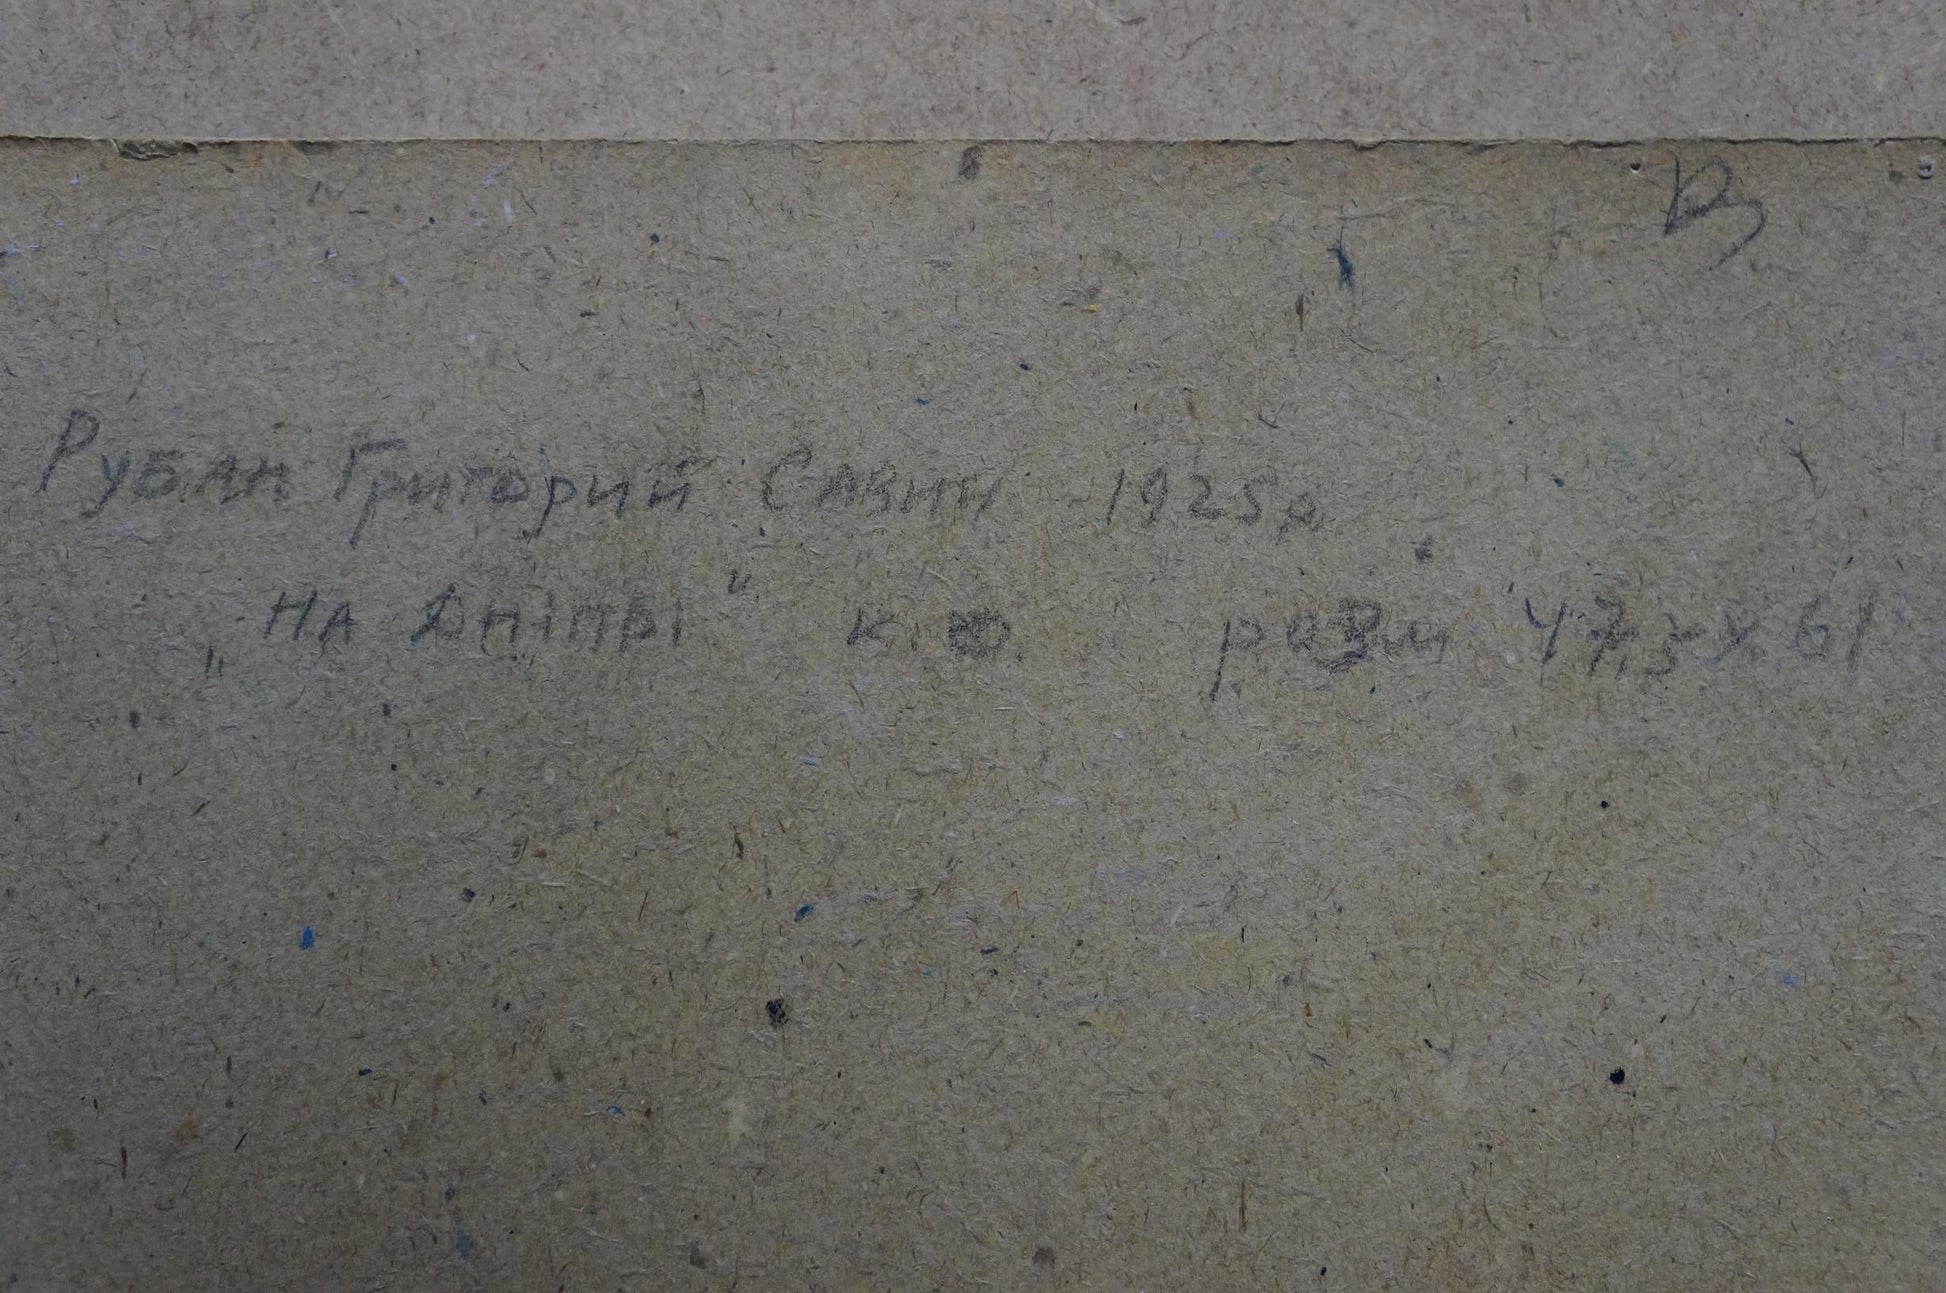 Рубан Григорий Савич 1925 р
„На Дніпрі" к. о. розм 47,5 х 61